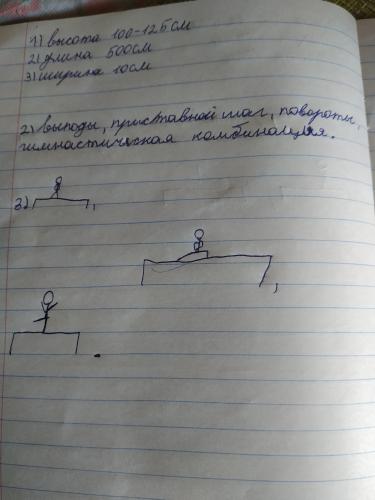 1) высота 100-125см
2) длина 500см
3) ширина 10см
2) выпады, приставной шаг, повороты,
гимнастическая комбинация.
3) ,
,
.